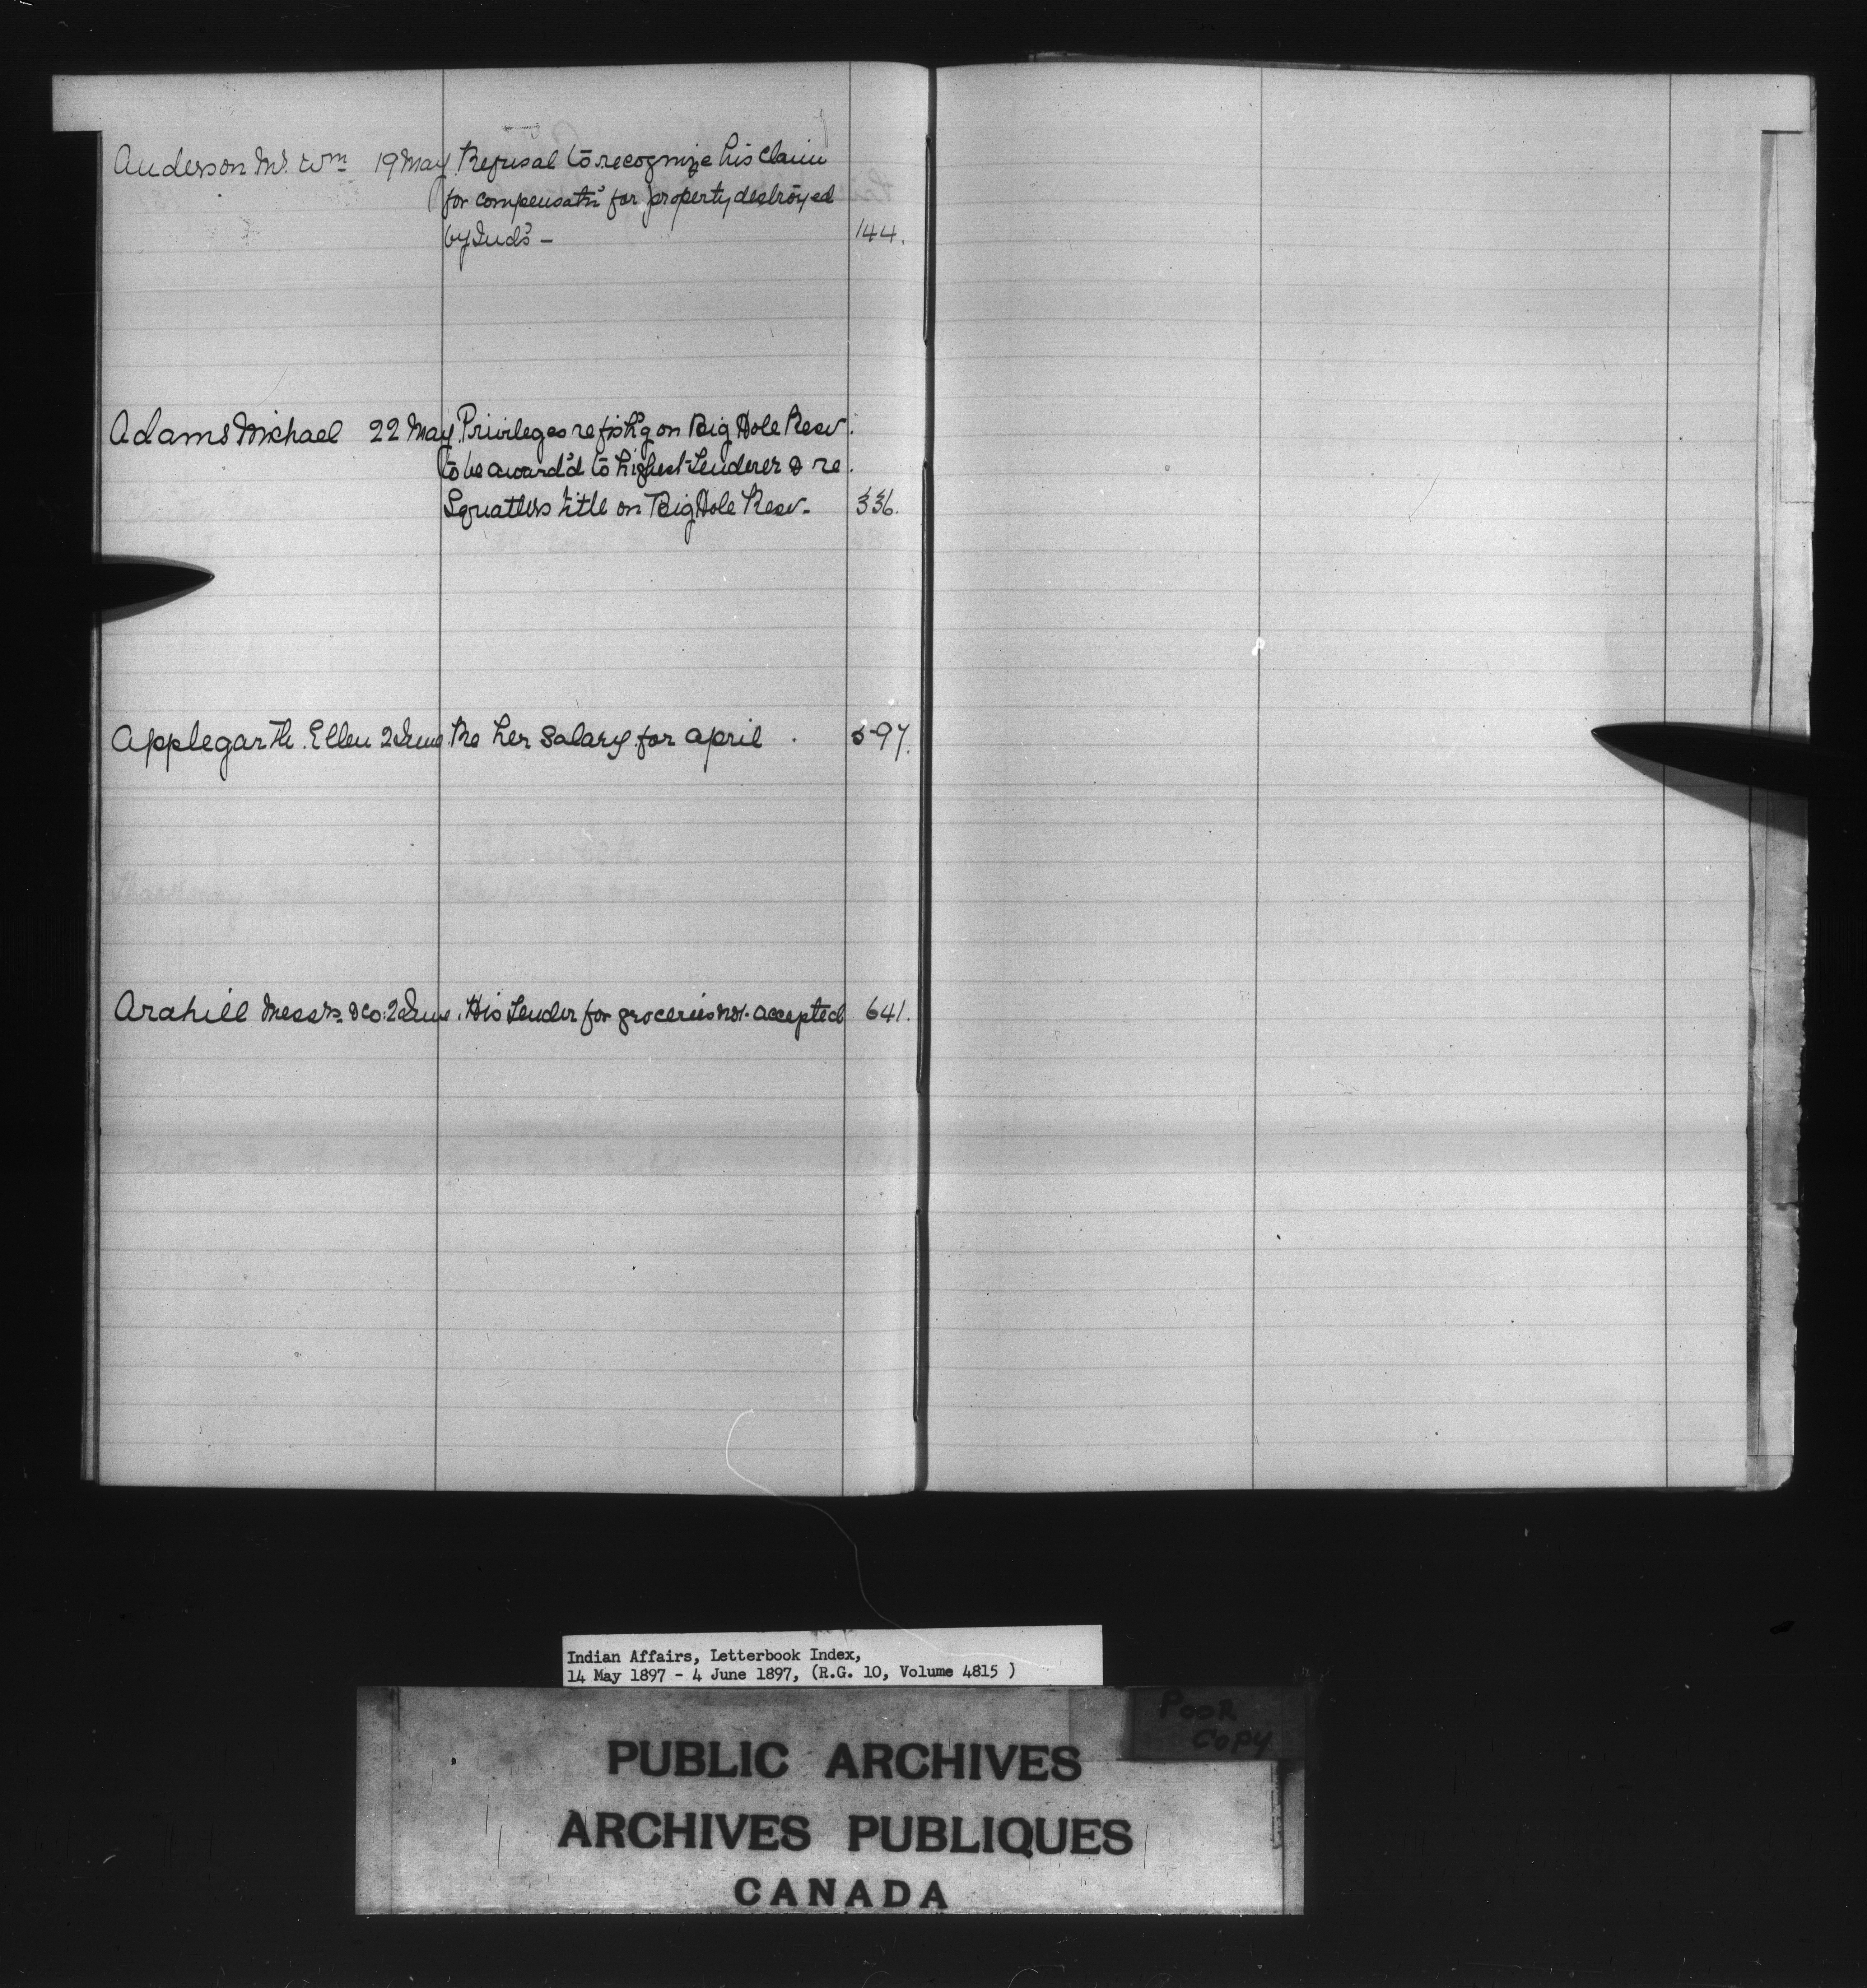 Anderson Mr. Wm 19 May Refusal to recognize his claim
for compensatn for property destroyed
by Inds - 144.
Adams Michael 22 May. Privileges re fish'g on Big Hole Resv.
to be award'd to highest Tenderer & re
Squatters title on Big Hole Resv. 336.
Applegarth. Ellen 2 June Re her Salary for April . 597.
Arahill Messrs. & Co. 2 June. His Tender for groceries not accepted 641.
Indian Affairs, Letterbook Index,
14 May 1897 - 4 June 1897, (R.G. 10, Volume 4815 )
POOR
COPY
PUBLIC ARCHIVES
ARCHIVES PUBLIQUES
CANADA